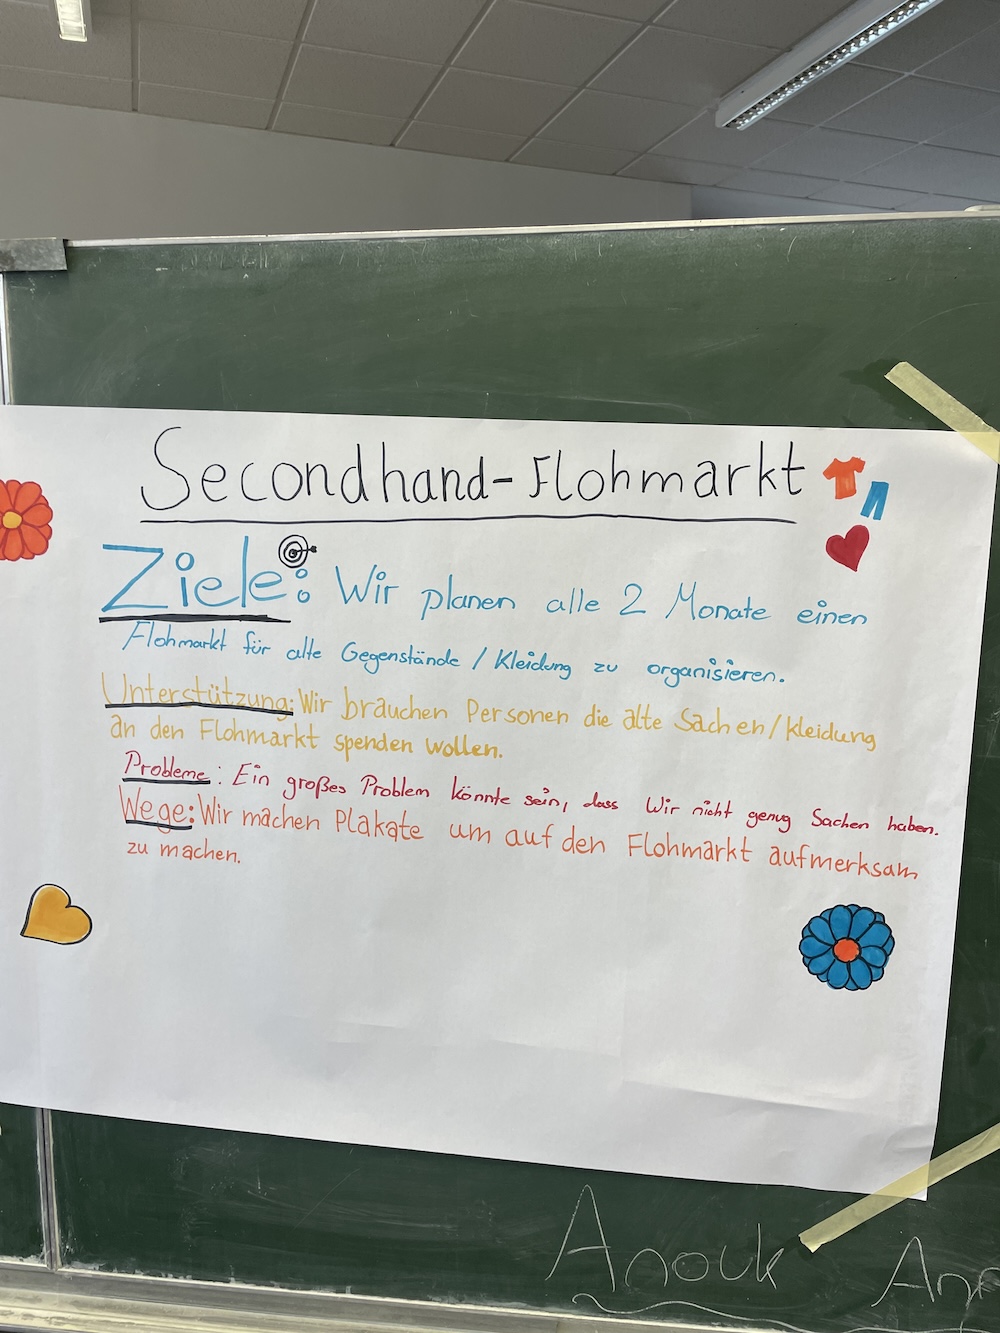 Secondhand-Flohmarkt
Ziele: Wir planen alle 2 Monate einen
Flohmarkt für alte Gegenstände / Kleidung zu organisieren.
Unterstützung: Wir brauchen Personen die alte Sachen/Kleidung
an den Flohmarkt spenden wollen.
Probleme: Ein großes Problem könnte sein, dass Wir nicht genug Sachen haben.
Wege: Wir machen Plakate um auf den Flohmarkt aufmerksam
zu machen.
Anouk